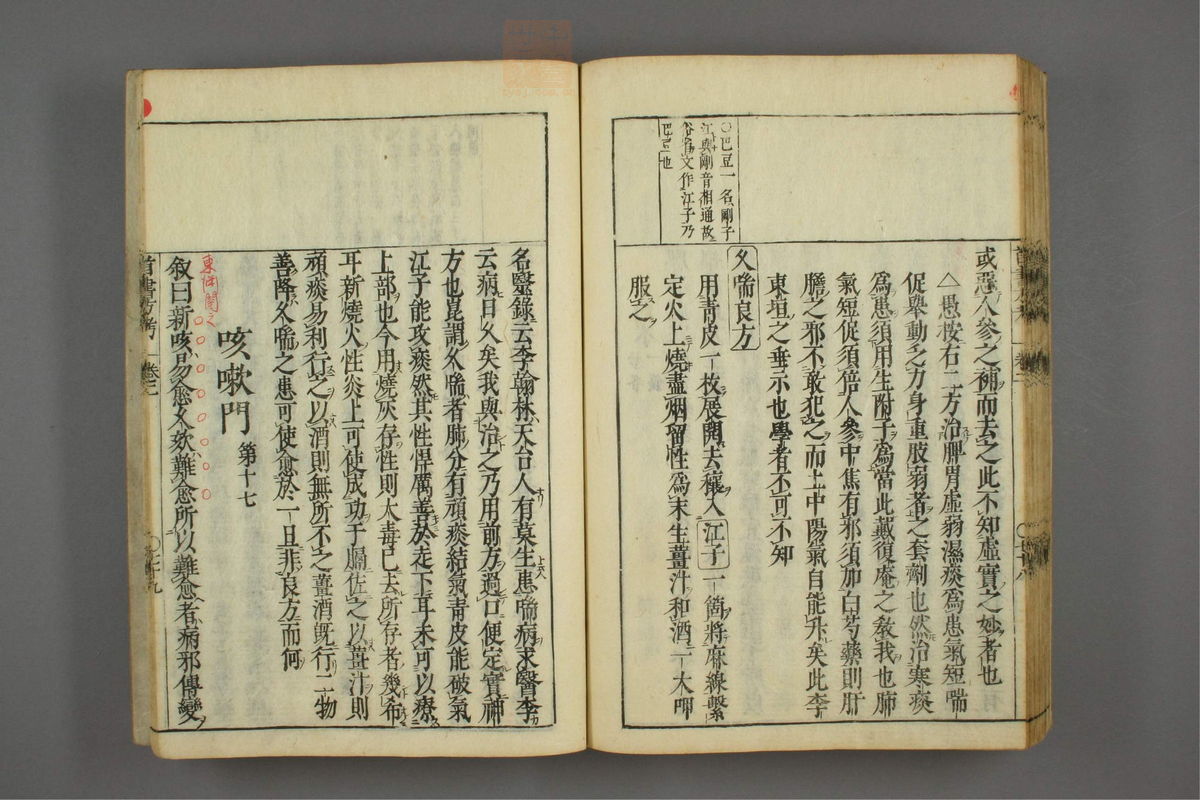 〇巴豆一名剛子
江與剛音相通故
俗省文作江子乃
巴豆也
或惡人參之補而去之此不知虛實之妙者也
△愚按右二方治脾胃虛弱濕痰爲患氣短喘
促舉動乏力身重肢弱者之套劑也然治寒痰
爲患須用生附子爲當此戴復庵之敎我也肺
氣短促須倍人參中焦有邪須加白芍藥則肝
膽之邪不敢犯之而上中陽氣自能升矣此李
東垣之垂示也學者不可不知
久喘良方
用青皮一枚展開去穰入江子一箇將麻線繫
定火上燒盡烟留性爲末生薑汁和酒一大呷
服之
名醫錄云李翰林天台人有莫生患喘病求醫李
云病日久矣我與治之乃用前方過口便定實神
方也崑謂久喘者肺分有頑痰結氣青皮能破氣
江子能攻痰然其性悍厲善於走下耳未可以療
上部也今用燒灰存性則大毒已去所存者幾希
耳新燒火性炎上可使成功于膈佐之以薑汁則
頑痰易利行之以酒則無所不之薑酒旣行二物
善降久喘之患可使愈於一旦非良方而何
咳嗽門 第十七
叙曰新咳易愈久欬難愈所以難愈者病邪傳變